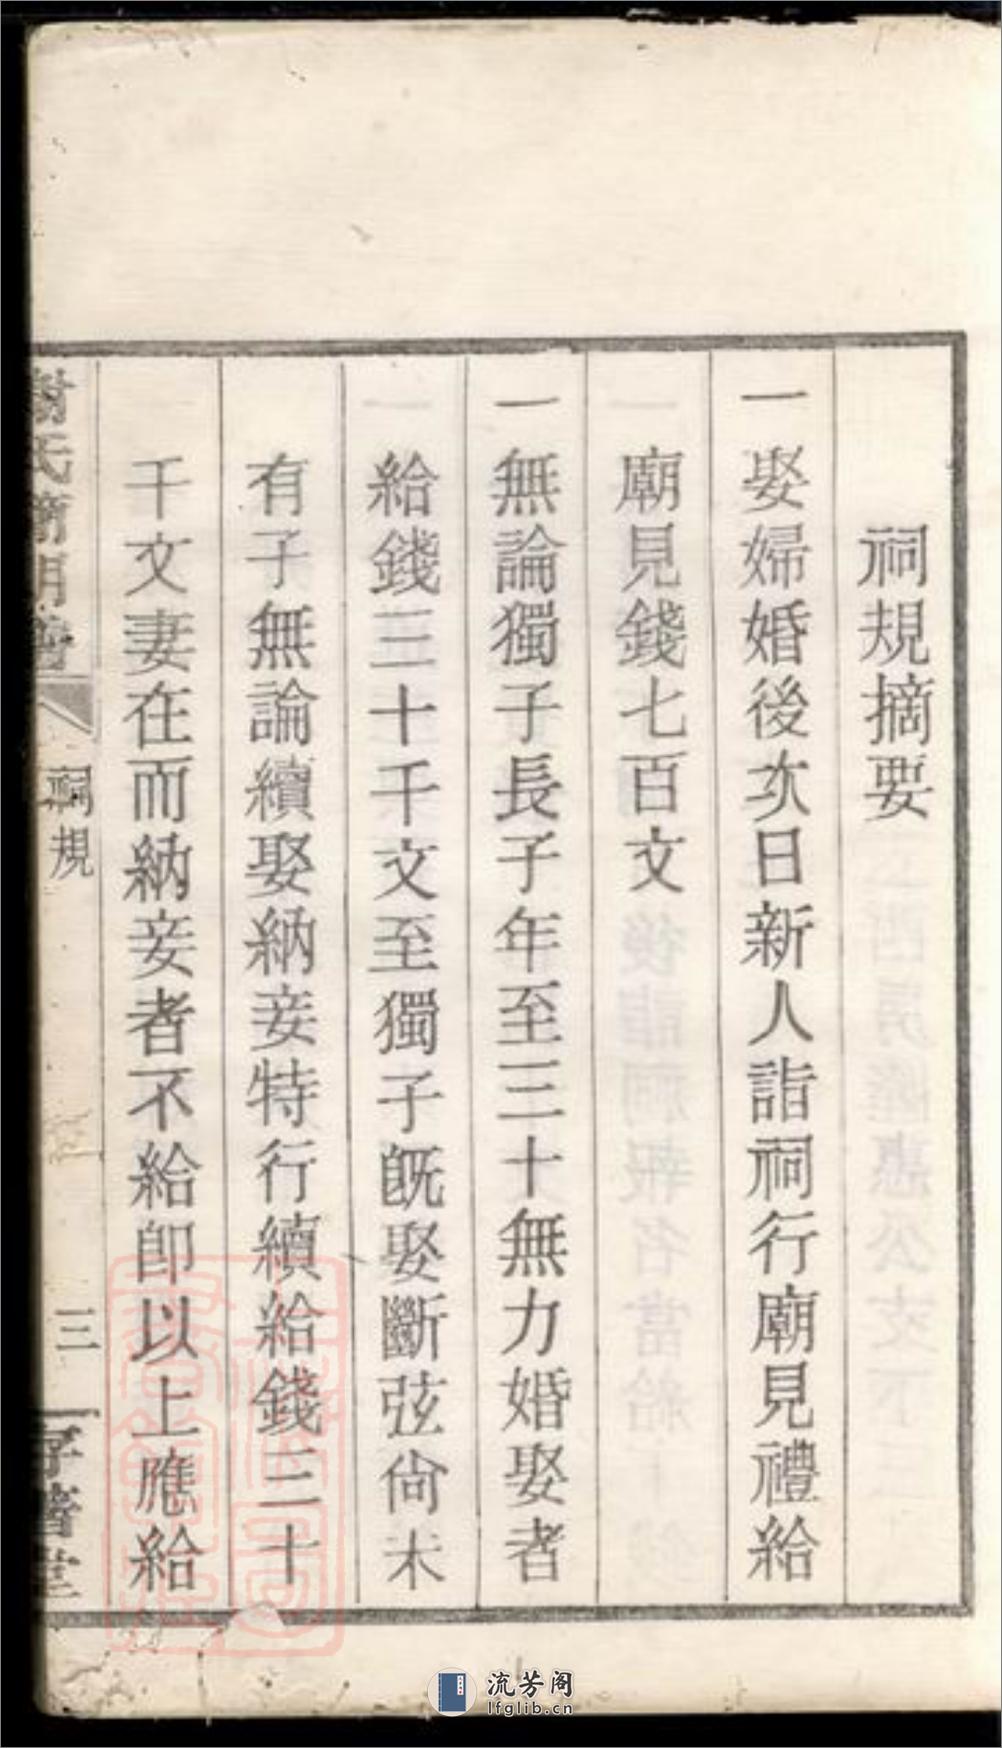 祠規摘要
一娶婦婚後次日新人詣祠行廟見禮給
廟見錢七百文
一無論獨子長子年至三十無力婚娶者
給錢三十千文至獨子旣娶斷弦尙未
有子無論續娶納妾特行續給錢三十
千文妻在而納妾者不給卽以上應給
氏簡明譜
祠規
三
流芳阁
lfglib.cn